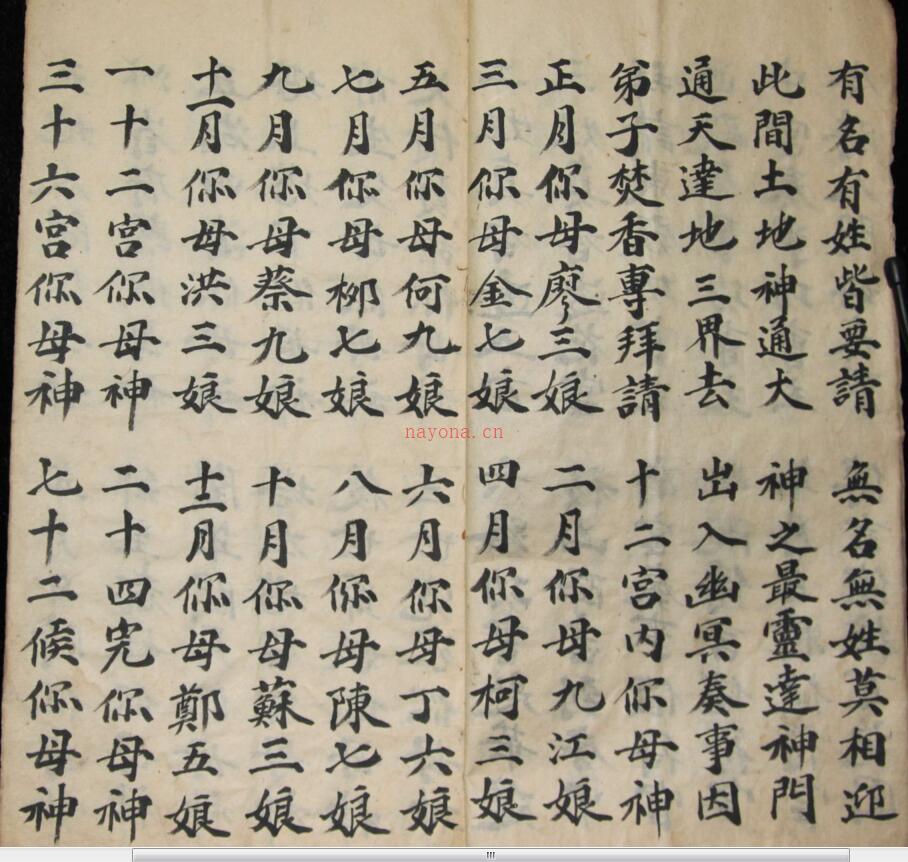 有名有姓皆要請 無名無姓莫相迎
此間土地神通大 神之最靈達神門
通天達地三界去 出入幽冥奏事因
弟子焚香專拜請 十二宮内你母神
正月你母廖三娘 二月你母九江娘
三月你母金七娘 四月你母柯三娘
五月你母何九娘 六月你母丁六娘
七月你母柳七娘 八月你母陳七娘
九月你母蔡九娘 十月你母蘇三娘
十一月你母洪三娘 十二月你母鄭五娘
一十二宮你母神 二十四宄你母神
三十六宮你母神 七十二候你母神
nayona.cn